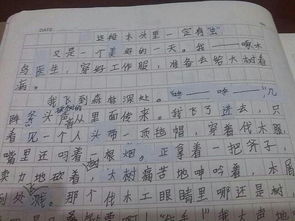 DATE
这棵木头里一定有虫
又是一个美好的一天。我——啄木
鸟医生,穿好工作服,准备去给大树看
病。
我飞到森林深处。"——咚","几
阵斧头声从里面传来。我飞了进去,只
看见一个人头带一顶绝帽,穿着伐木服,
嘴里还叼着根烟。正拿着一把斧子,
卖力地砍着大树痛苦地呻吟着,木屑
到处溅。那个伐木工眼睛里哪还是树,